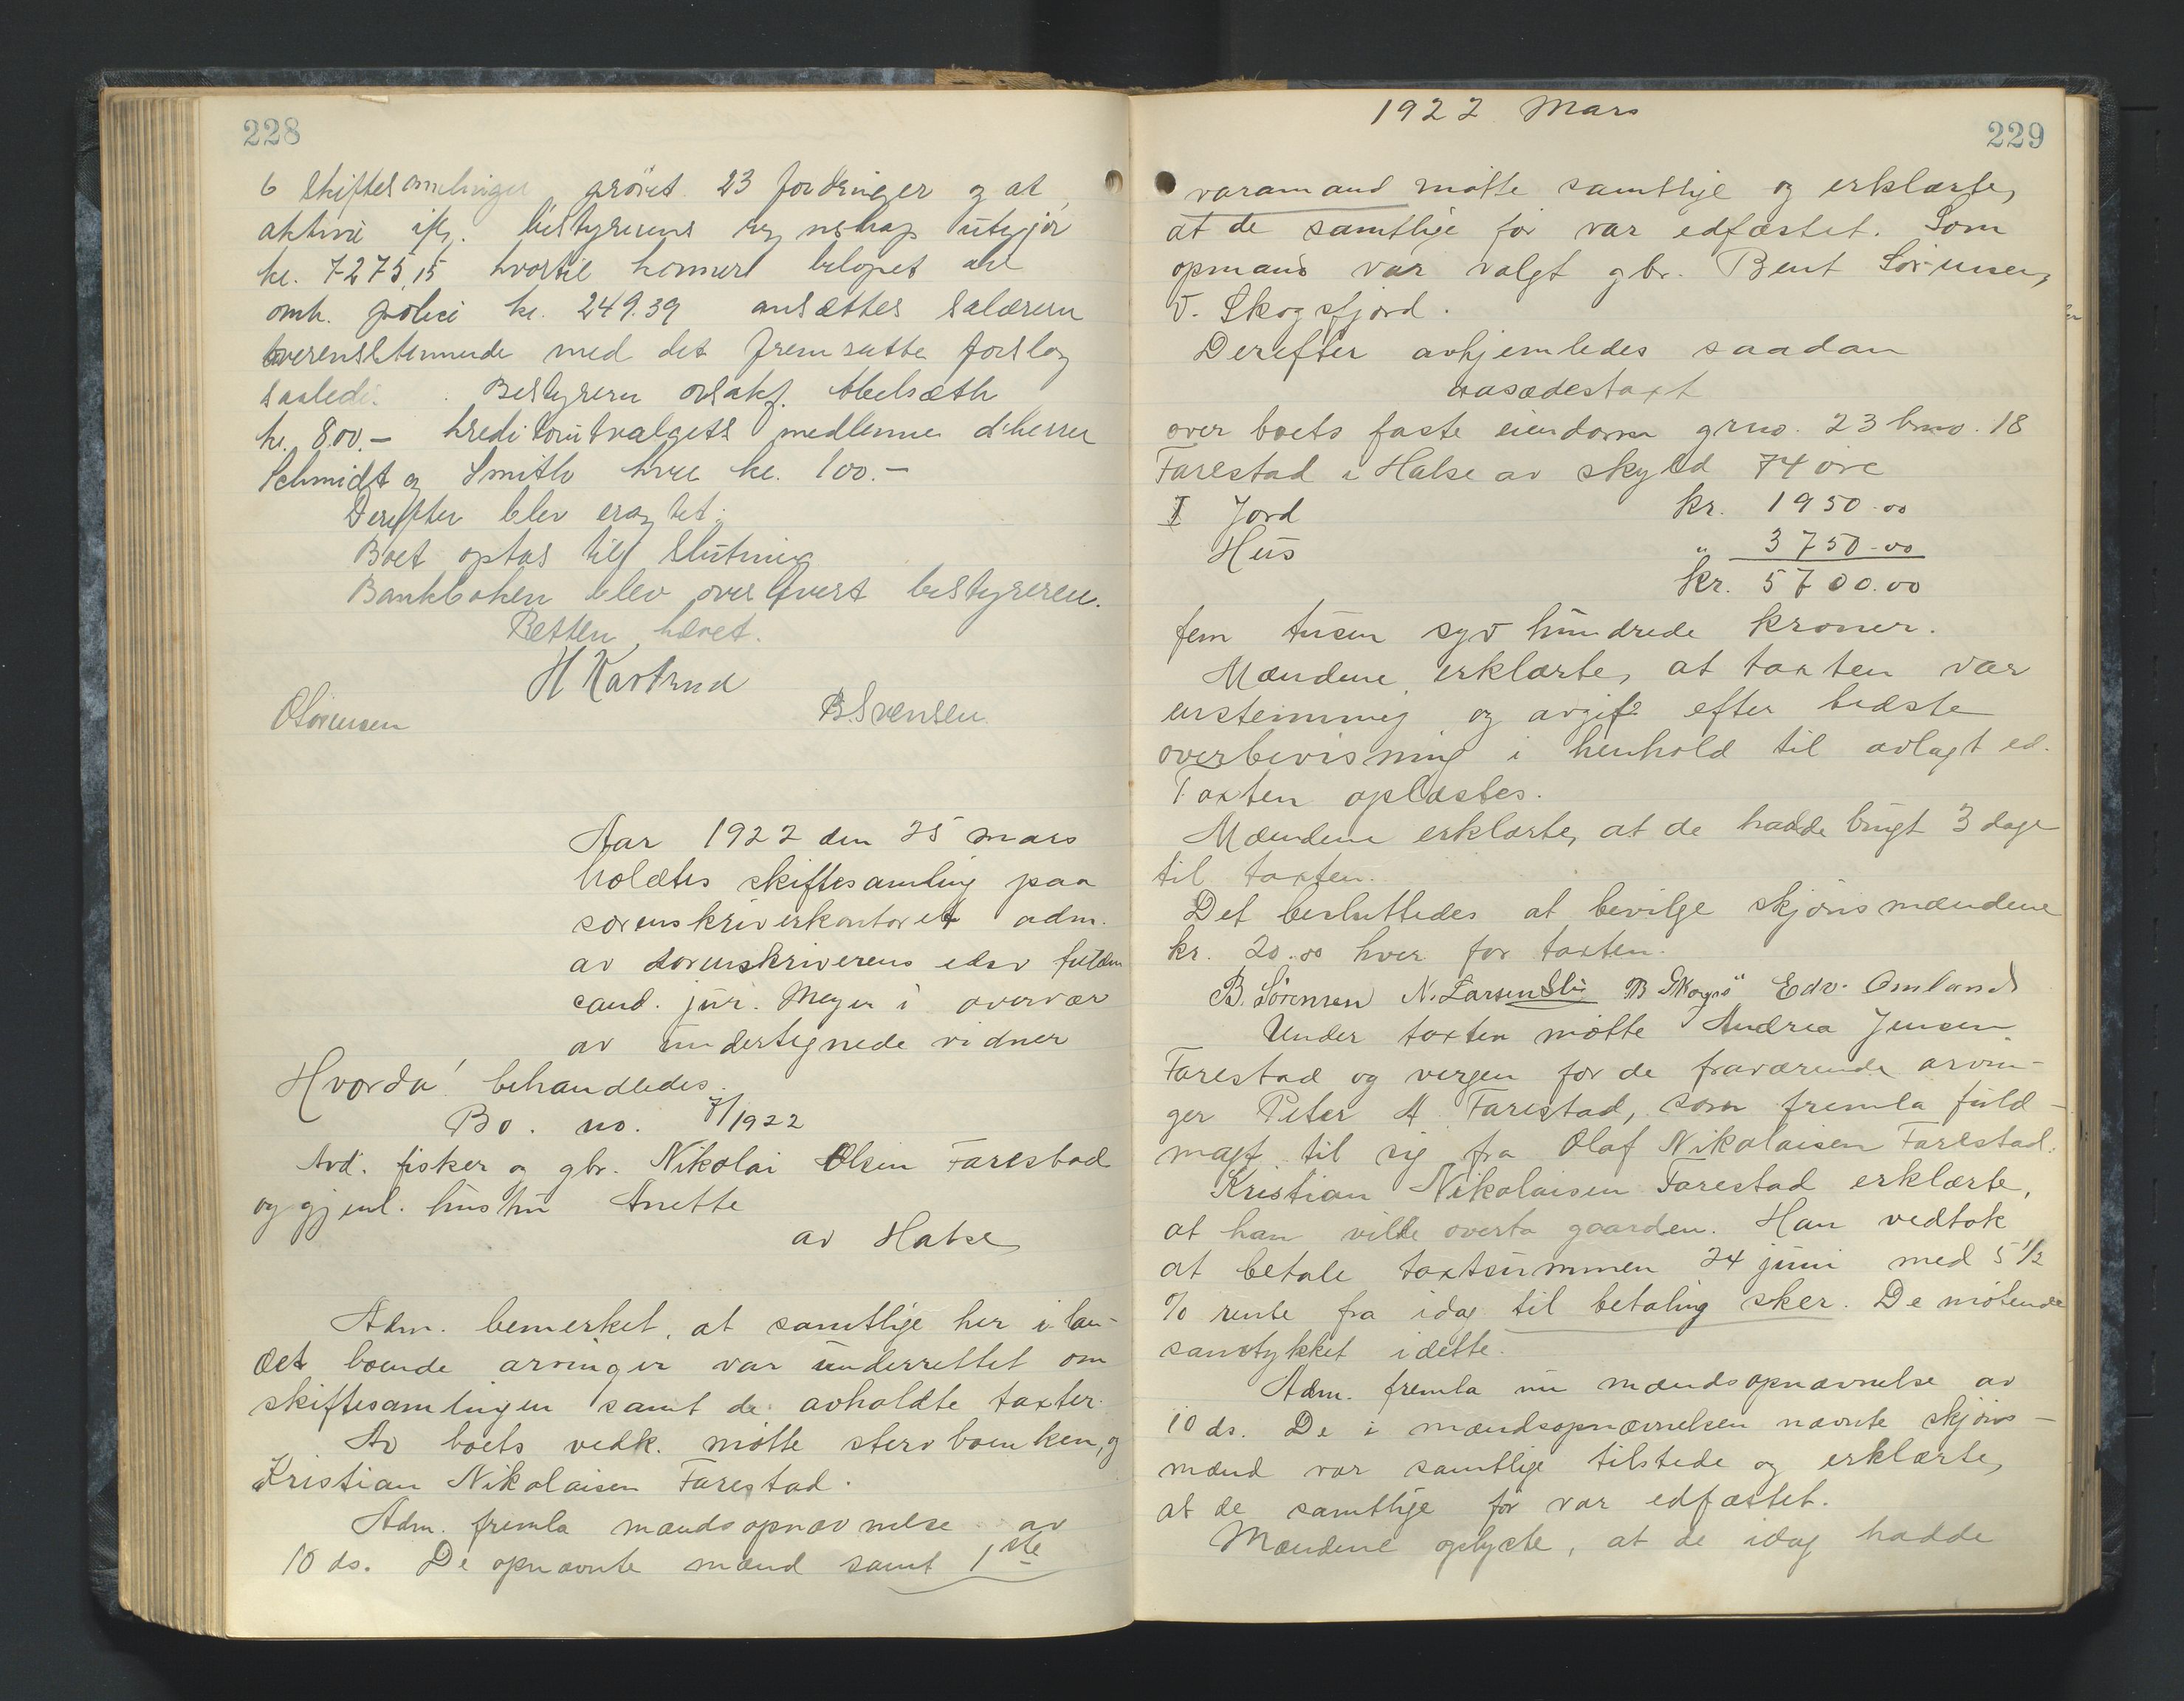 228
6 skiftesamlinger prøvet 23 fordringer og at
aktiva ifg. bestyrerens regnskap utgjør
kr. 7275,15 hvortil kommer beløpet
omh. police kr. 249.39 ansættes salærene
overensstemmende med det fremsatte forslag
saaledes. Bestyreren o.r.sakf.
kr. 800.- kreditorutvalgets medlemmer d'herrer
Schmidt og Smith hver kr. 100.-
Derefter blev eragtet:
Boet optas til slutning
Bankboken blev overlevert bestyreren.
Retten hævet.
H Kartrud
OSørensen BSvensen
Aar 1922 den 25 mars
holdtes skiftesamling paa
sorenskriverkontoret adm.
av sorenskriverens edsv fuldm
cand. jur. Meyer i overvær
av undertegnede vidner
Hvorda! behandledes.
Bo. no. 7/1922
Avd. fisker og gbr. Nikolai Olsen Farestad
og gjenl. hustru Anette
av Halse
Adm. bemerket, at samtlige her i lan-
det boende arvinger var underrettet om
skiftesamlingen samt de avholdte taxter.
Av boets vedk. møtte stervboenken, og
Kristian Nikolaisen Farestad.
Adm. fremla mændsopnævnelse av
10 ds. De opnævnte mænd samt 1ste
1922 Mars
229
varamand møtte samtlige og erklærte,
at de samtlige før var edfæstet. Som
opmand var valgt gbr. Bent Sørensen,
V. Skogsfjord.
Derefter avhjemledes saadan
aasædestaxt
over boets faste eiendom grno. 23 brno. 18
Farestad i Halse av skyld 74 øre
I Jord kr. 1950.00
Hus " 3750.00
kr. 5700.00
fem tusen syv hundrede kroner.
Mændene erklærte, at taxten var
enstemmig og avgit efter bedste
overbevisning i henhold til avlagt ed.
Taxten oplæstes.
Mændene erklærte, at de hadde brugt 3 dage
til taxten.
Det besluttedes at bevilge skjønsmændene
kr. 20.00 hver for taxten.
B. Sørensen N. Larsen B Skogsø Edv. Omland
Under taxten møtte Andrea Jensen
Farestad og vergen for de fraværende arvin-
ger Peter A Farestad, som fremla fuld-
magt til sig fra Olaf Nikolaisen Farestad.
Kristian Nikolaisen Farestad erklærte,
at han vilde overta gaarden. Han vedtok
at betale taxtsummen 24 juni med 5 1/2
% rente fra idag til betaling sker. De møtende
samtykket i dette.
Adm. fremla nu mændsopnævnelse av
10 ds. De i mændsopnævnelsen nævnte skjøns-
mænd var samtlige tilstede og erklærte,
at de samtlige før var edfæstet.
Mændene oplyste, at de idag hadde